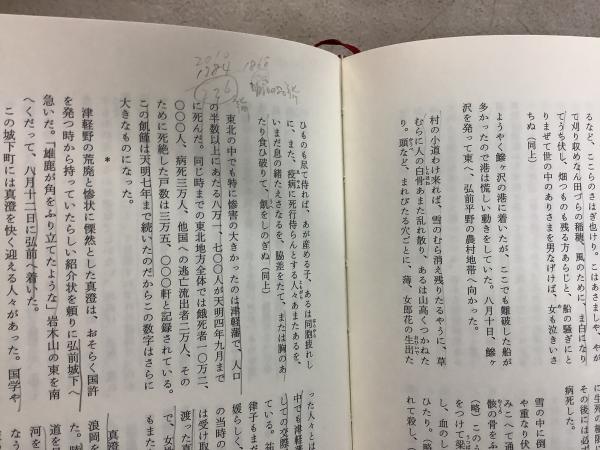 るなど、ここらのさはぎ也けり。こはあさましや、やが
て刈り収めなん田づらの稲穂、風のために、ま白になり
てうち伏し、畑つものも残る方あらじと、船の騒ぎにと
りまぜて世の中のありさまを男なげけば、女も泣きいさ
ちぬ（同上）
ようやく鰺ヶ沢の港に着いたが、ここでも難破した船が
多かったので港は慌しい動きをしていた。八月十日、鰺ヶ
沢を発って東へ、弘前平野の農村地帯へ向かった。
村の小道わけ来れば、雪のむら消え残りたるやうに、草
むらに人の白骨あまた乱れ散り、あるは山高くつかねた
り。頭など、まれびたる穴ごとに、薄、女郎花の生出た
雪の中に倒
や重なり伏
みこへて通
骸の骨をふ
（略）このう
をつけて
し、血のし
ひたり。（略
れて殺し、（
に生死の
その後には必ず
病死した。
2010
1784
226
1868
ひものも尽て侍れば、あが産める子、あるは同胞疲れし
に、また、疫病に死行侍らんとする人々あまたあるを、
いまだ息の緒たえさなるを、脇差をたて、または胸のあ
たり食ひ破りて、飢をしのぎぬ（同上）
東北の中でも特に惨害の大きかったのは津軽藩で、人口
の半数以上にあたる八万一、七〇〇人が天明四年九月まで
に死んだ。同じ時までの東北地方全体では餓死者一〇万二、
〇〇〇人、病死三万人、他国への逃亡流出者二万人、その
ために死絶した戸数は三万五、〇〇〇軒と記録されている。
この飢饉は天明七年まで続いたのだからこの数字はさらに
大きなものになった。
*
津軽野の荒廃と惨状に慄然とした真澄は、おそらく国許
を発つ時から持っていたらしい紹介状を頼りに弘前城下へ
急いだ。「雄鹿が角をふり立てたような」岩木山の東を南
へくだって、八月十二日に弘前へ着いた。
この城下町には真澄を快く迎える人々があった。国学や
った人々とは
中でも津軽
しての交際
る。
媛らしく、
律子もまだ
の当時の
は受け取
渡った真
で、女性
真澄
浪岡を
た。
道を
河を
なう